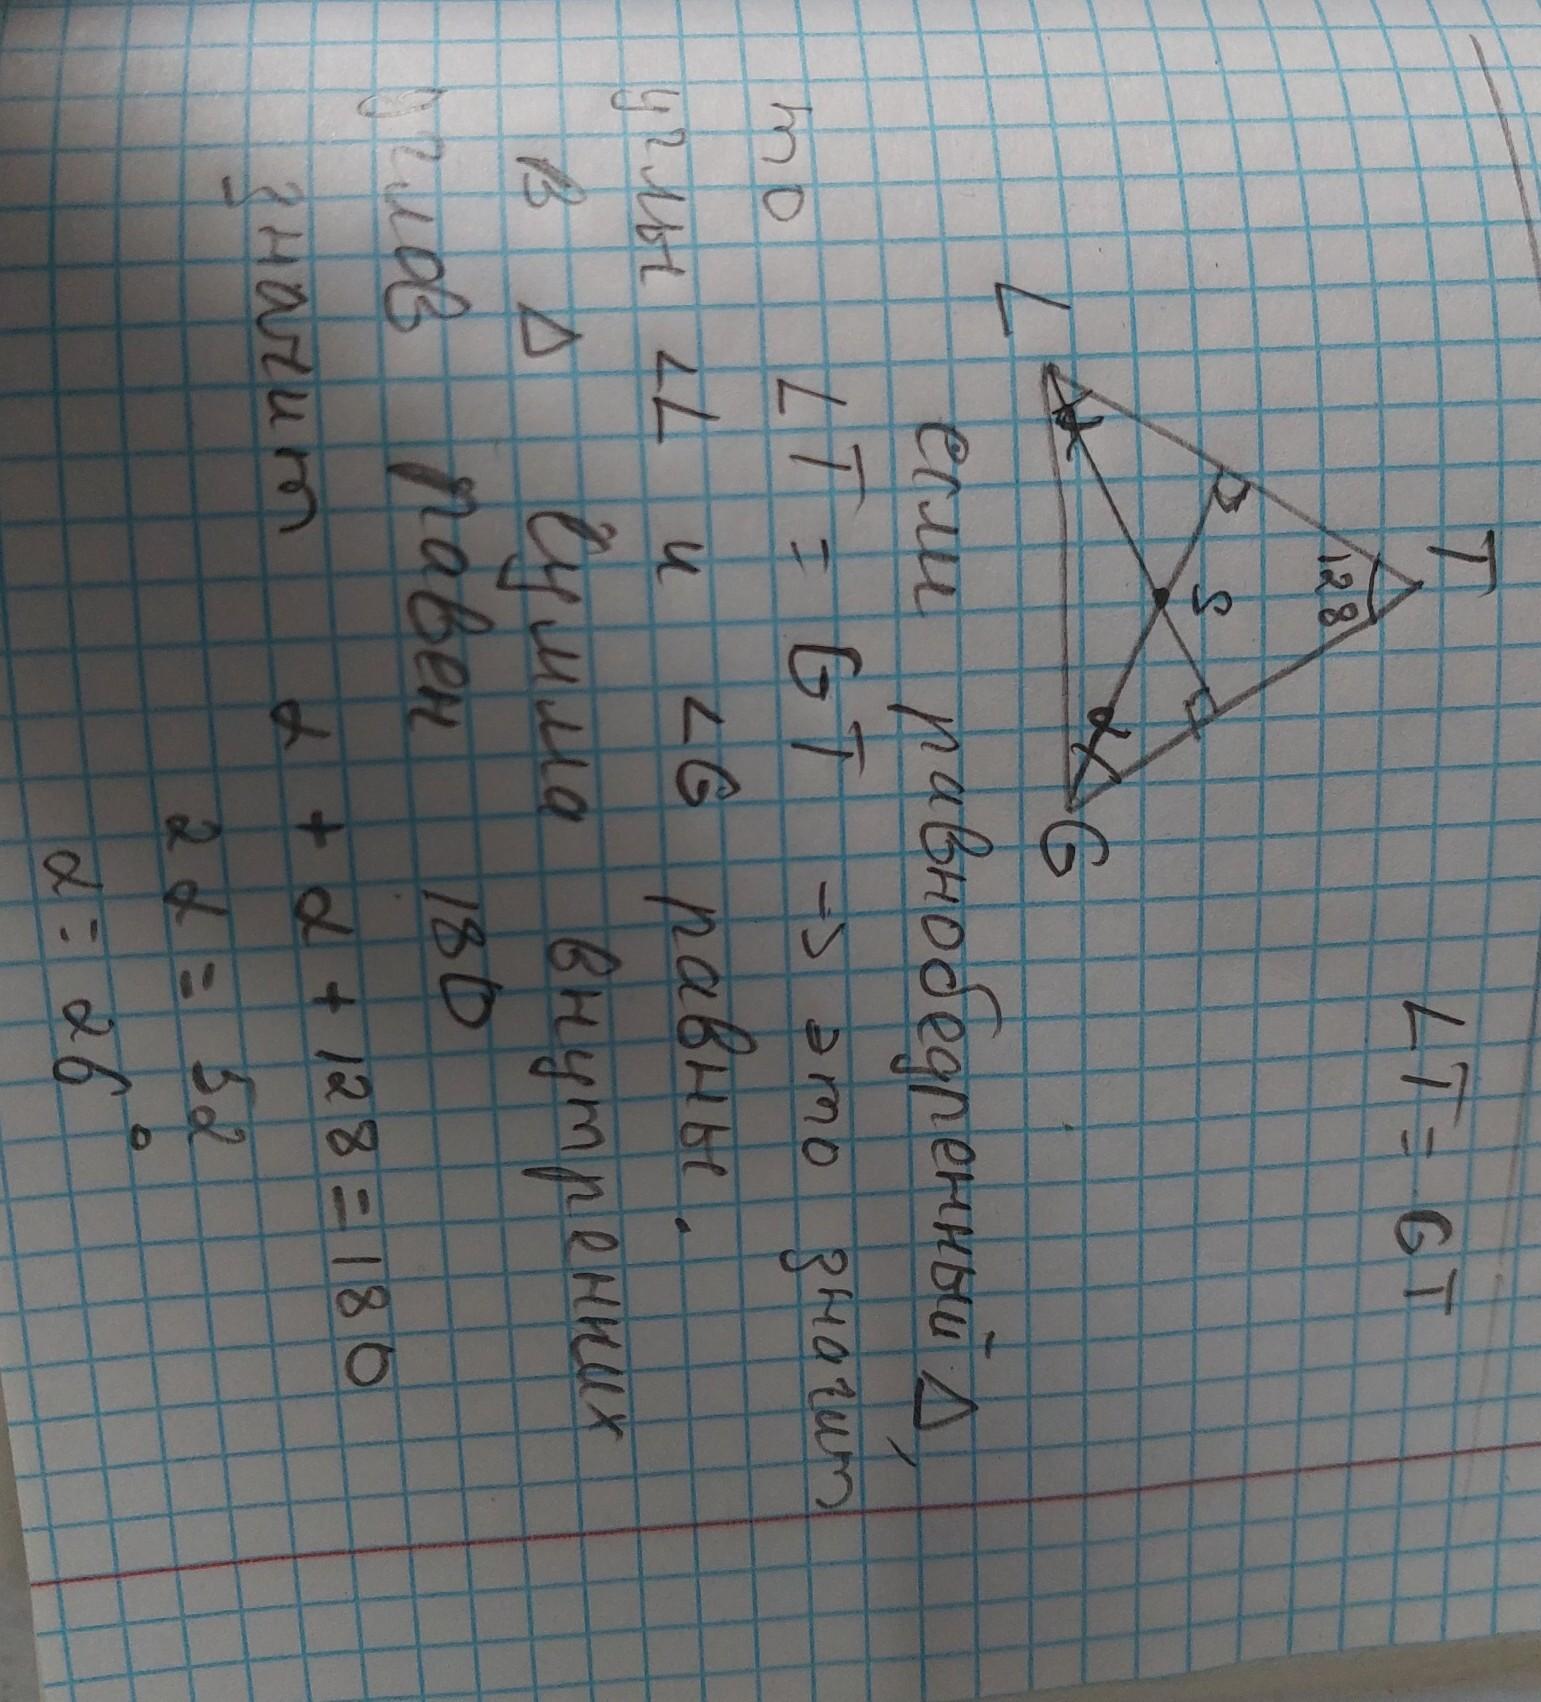 LT = GT
T
128
S
L
α
α
G
если равнобедренный Δ,
то LT = GT → это значит
углы ∠L и ∠G равны.
В Δ Сумма внутренних
углов равен 180
значит α + α + 128 = 180
2α = 52
α = 26°